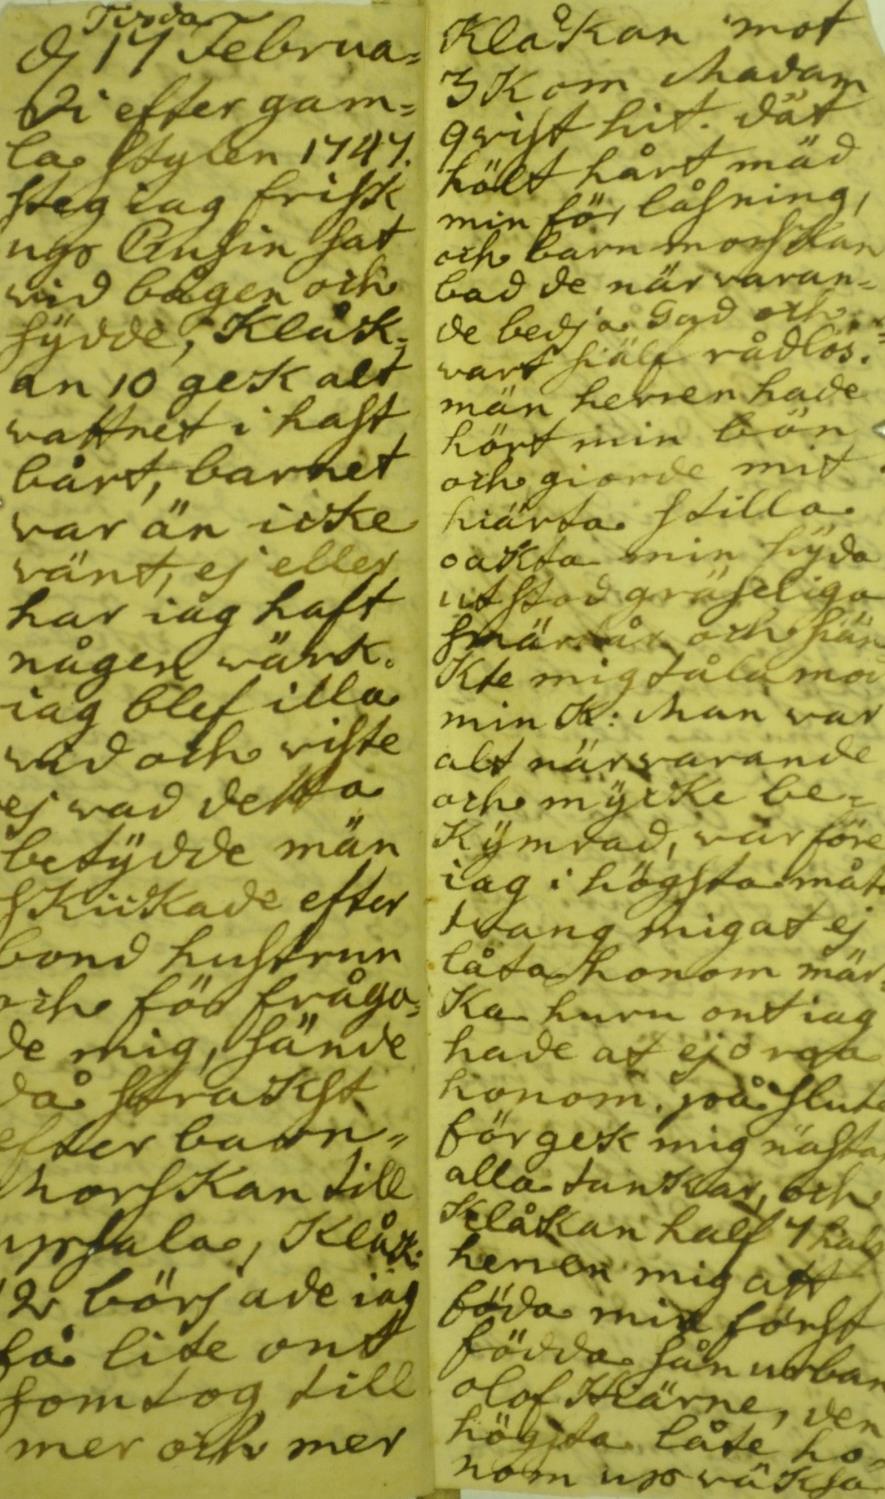 Tisdag
d 17 Februa=
ri efter gam=
la stylen 1747.
steg iag frisk
up Cusin sat
wid bågen och
sÿdde, Klåck=
an 10 gek alt
vattnet i hast
bårt, barnet
var än icke
vänt, ej eller
har iag haft
någen wärk.
iag blef illa
vid och viste
ej vad detta
betÿdde män
skickade efter
bond hustrun
och för fråga=
de mig, sände
då strakst
efter barn=
morskan till
upsala, Klåk:
2 började iag
få lite ont
som tog till
mer och mer
Klåkan mot
3 kom Madam
qvist hit. dät
hölt hårt mäd
min för låsning,
och barn morskan
bad de när varan=
de bedja Gud och
vart siälf rådlös.
män herren hade
hört min bön
och giorde mit
hiärta stilla
oakta min sÿda
utstod gräseliga
smärtår och siän
Kte mig tålamod
min K: Man var
alt närvarande
och mÿcke be=
Kÿmrad, var före
iag i högsta måto
tvang mig at ej
låta honom mär=
Ka huru ont iag
hade at ej orga
honom. på slute
för gek mig nästan
alla tankar, och
Klåkan half 4 halp
herren mig att
föda min först
födda sån urban
olof Hiärne, den
högsta låte ho=
nom up väksa